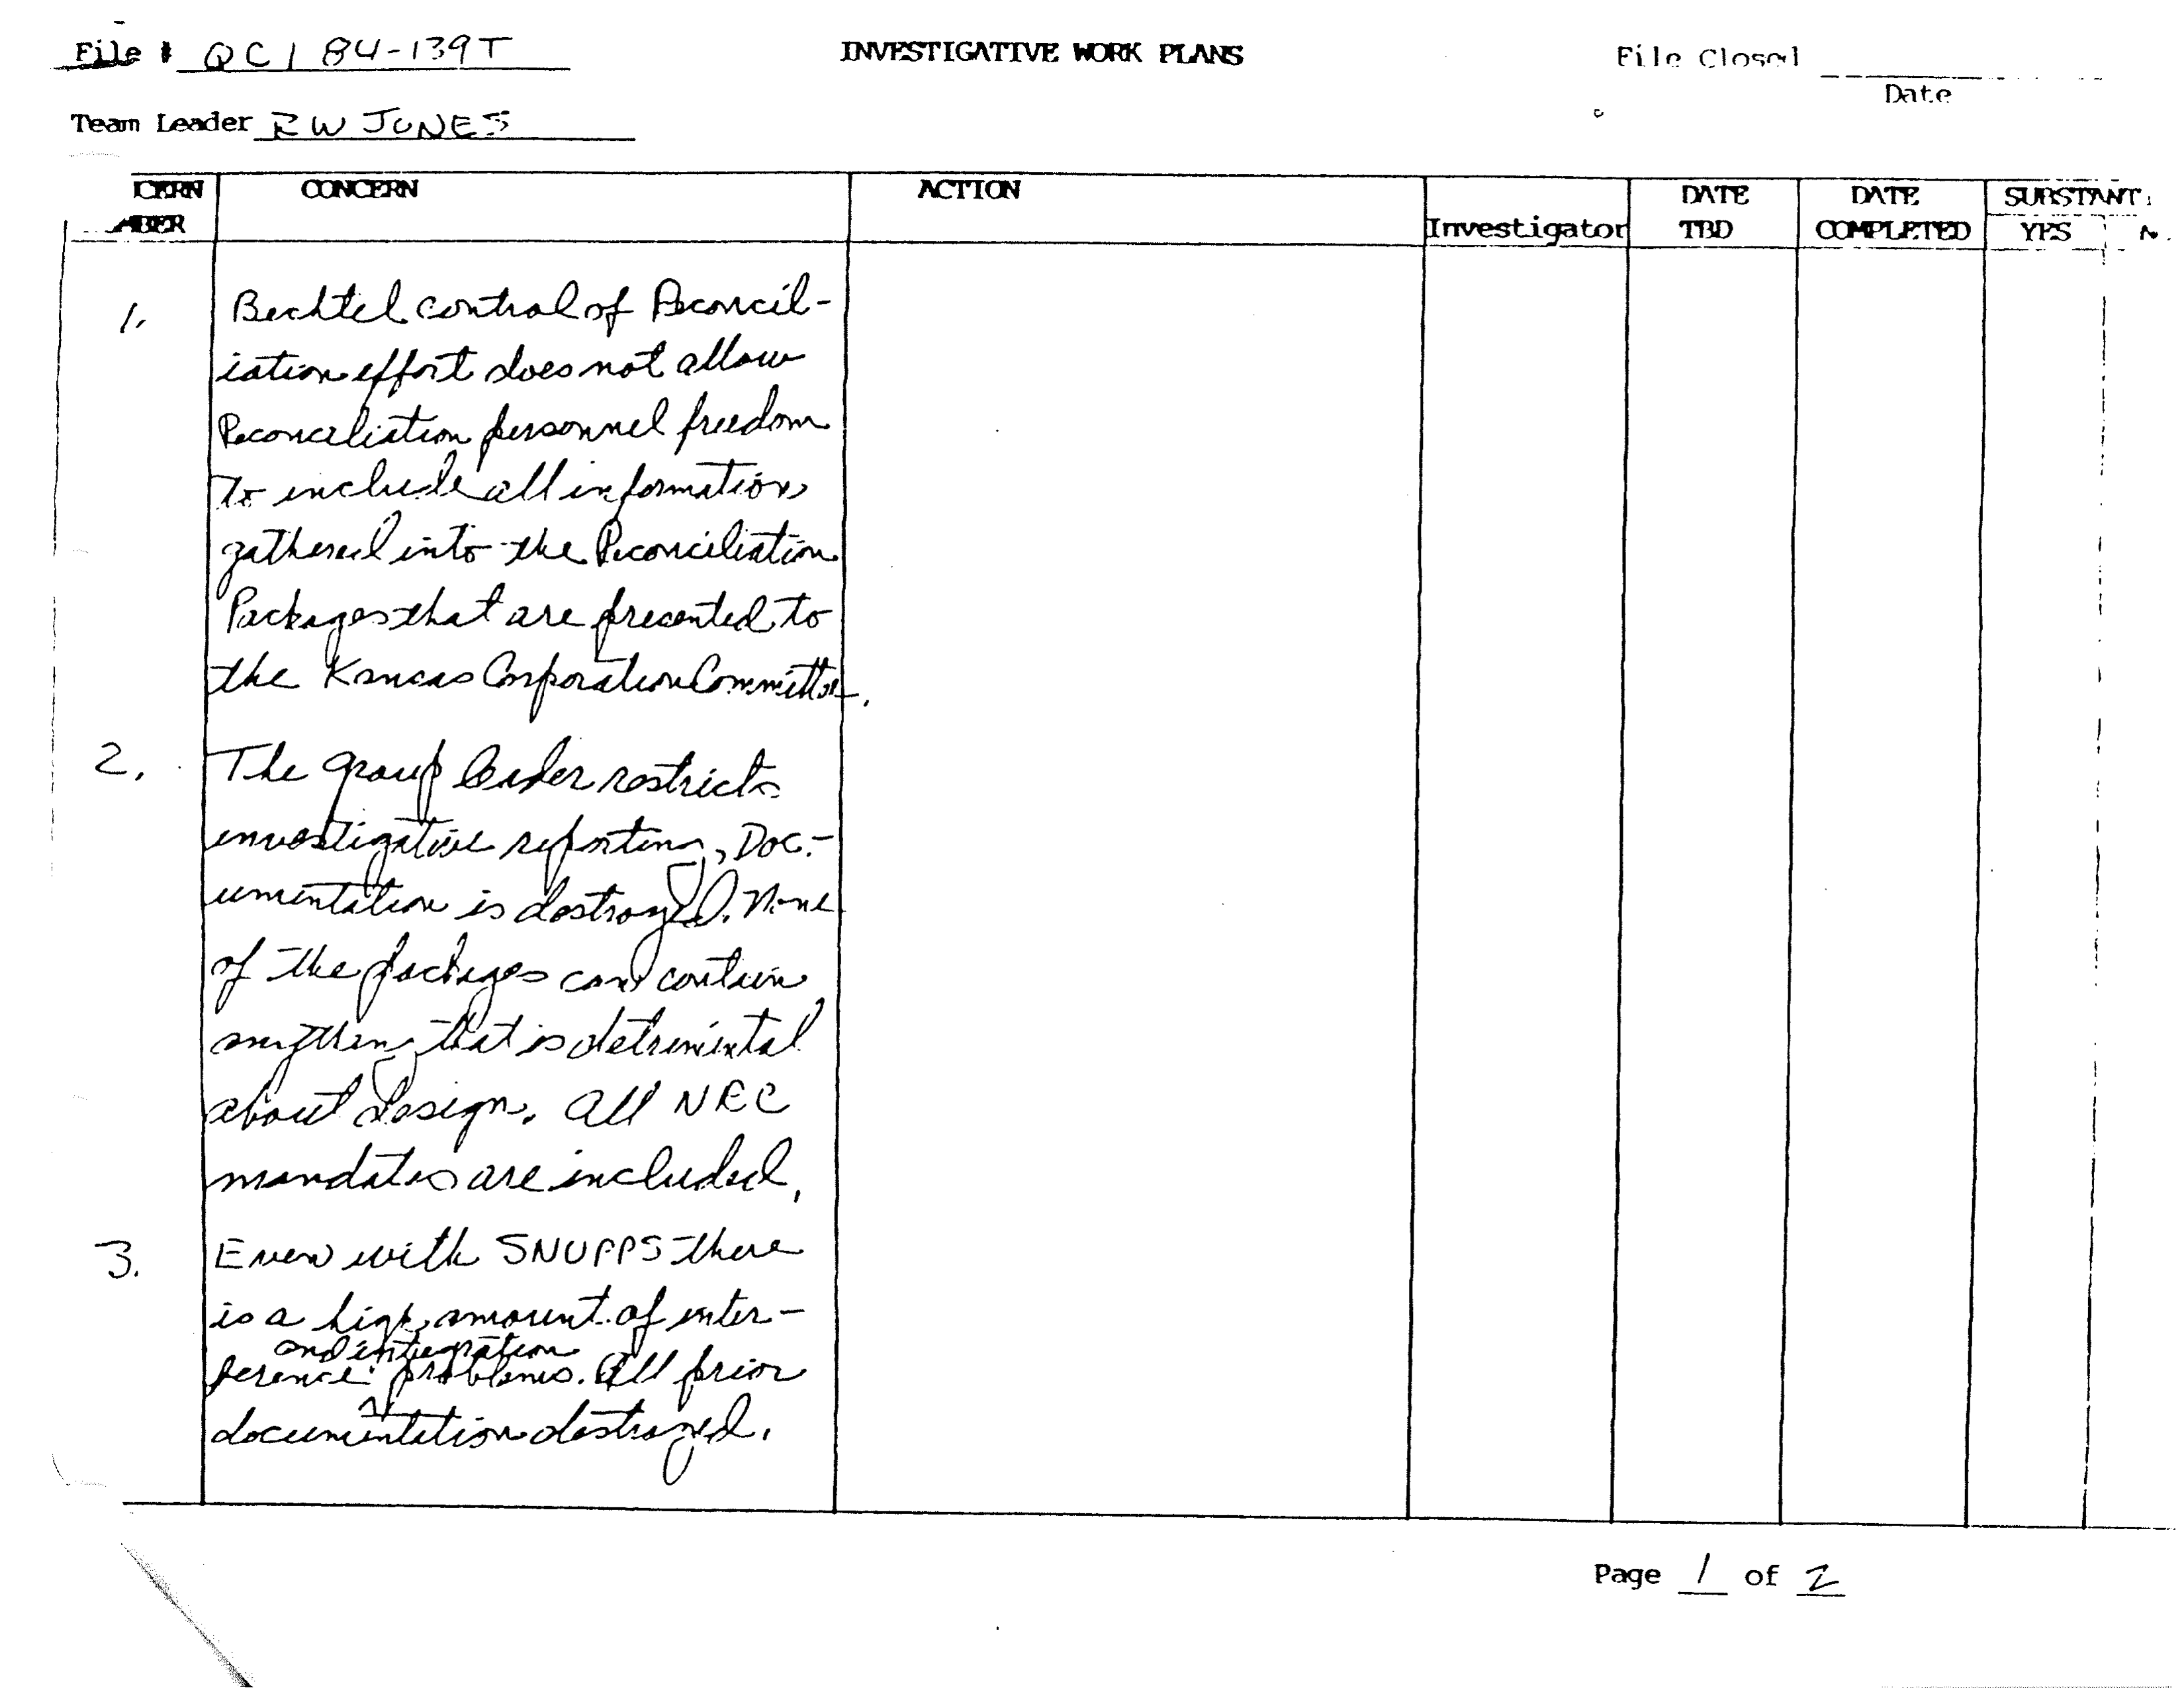 File # QCI 84-139T
INVESTIGATIVE WORK PLANS
File Closed
Date
Team Leader RW JONES
CERN
MBER
CONCERN
ACTION
Investigator
DATE
TBD
DATE
COMPLETED
SUBSTANT
YES
N
1.
Bechtel control of Reconcil-
iation effort does not allow
Reconciliation personnel freedom
to include all information
gathered into the Reconciliation
Packages that are presented to
the Kansas Corporation Committee.
2.
The group leader restricts
investigative reporting, Doc-
umentation is destroyed. None
of the packages can contain
anything that is detrimental
about design. All NRC
mandates are included.
3.
Even with SNUPPS there
is a high amount of inter-
and integration
ference problems. All prior
documentation destroyed.
Page 1 of 2